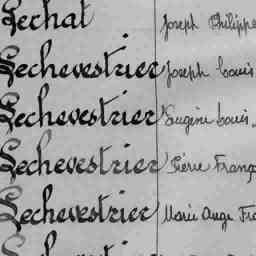 Lechat Joseph Philippe
Lechevestrier Joseph Louis
Lechevestrier Eugène Louis
Lechevestrier Pierre Franç
Lechevestrier Marie Ange Fra